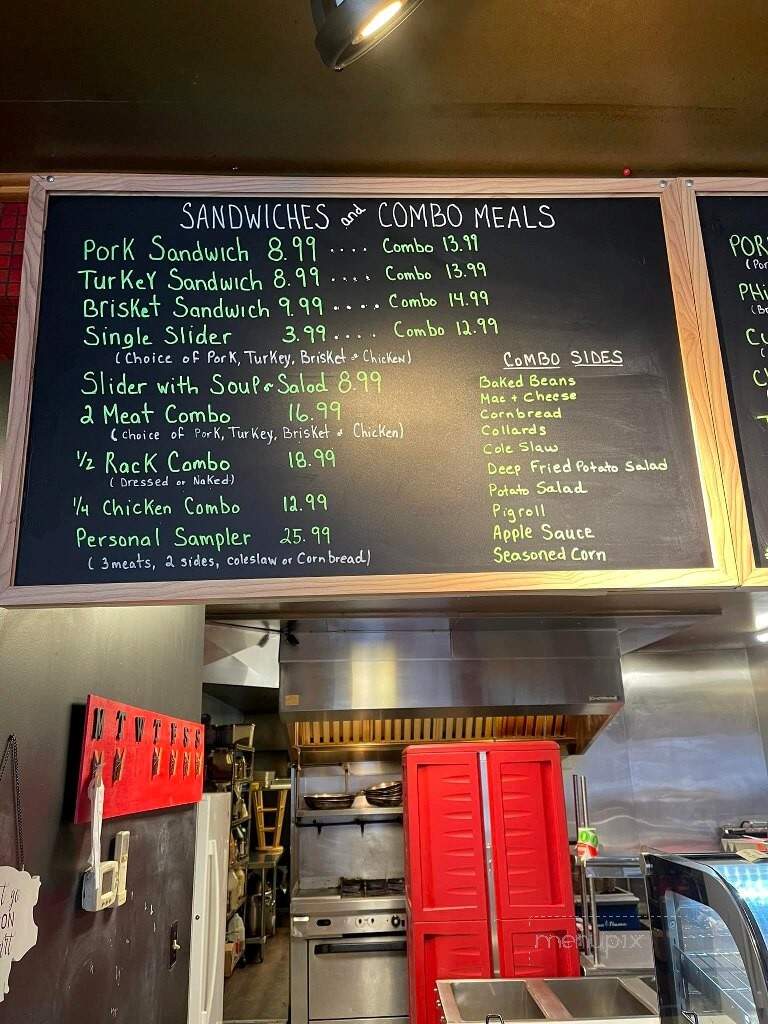 SANDWICHES and COMBO MEALS
Pork Sandwich 8.99 .... Combo 13.99
Turkey Sandwich 8.99 .... Combo 13.99
Brisket Sandwich 9.99 .... Combo 14.99
Single Slider 3.99 .... Combo 12.99
(Choice of Pork, Turkey, Brisket or Chicken)
Slider with Soup or Salad 8.99
2 Meat Combo 16.99
(Choice of Pork, Turkey, Brisket or Chicken)
1/2 Rack Combo 18.99
(Dressed or Naked)
1/4 Chicken Combo 12.99
Personal Sampler 25.99
(3 meats, 2 sides, coleslaw or Cornbread)
COMBO SIDES
Baked Beans
Mac + Cheese
Cornbread
Collards
Cole Slaw
Deep Fried Potato Salad
Potato Salad
Pigroll
Apple Sauce
Seasoned Corn
M T W T F S S
ON
menupix